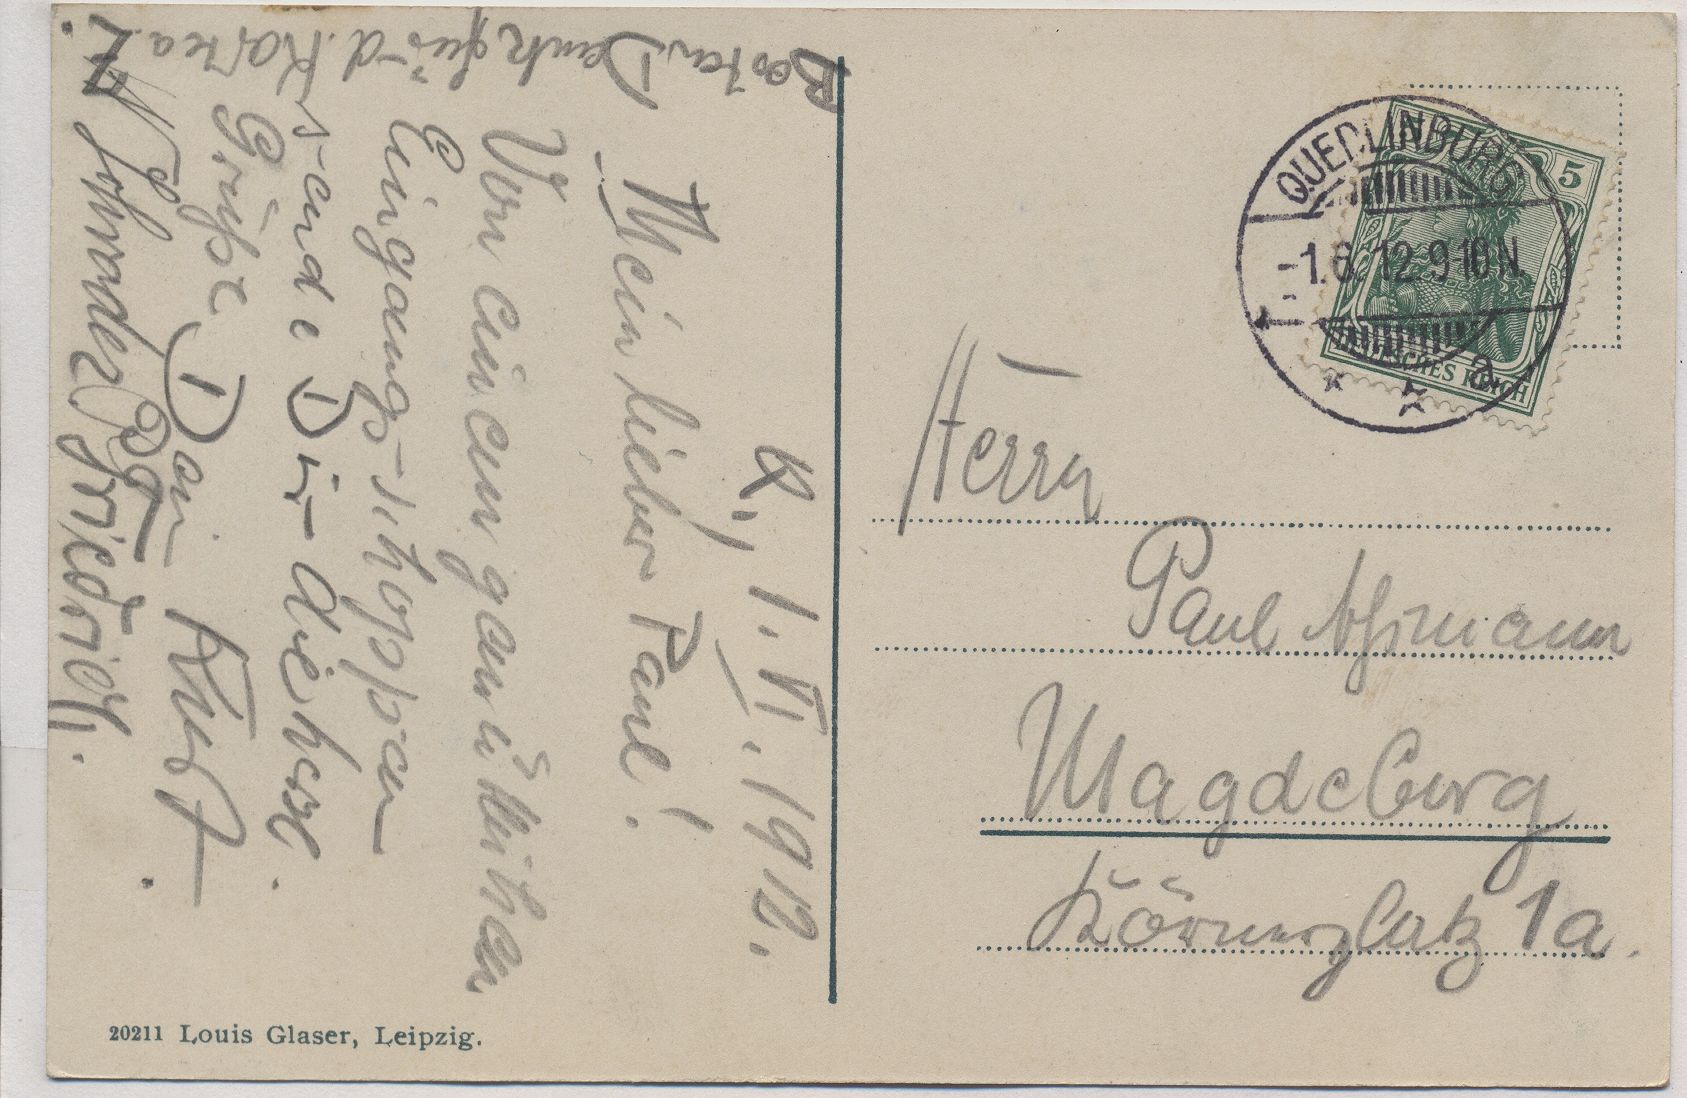 Q., 1. VI. 1912.
Mein lieber Paul!
Von einem gemütlichen
Eingangsschoppen
sende Dir diese
Grüße Dein Kurt.
Besten Dank für d. Karte a.
Schrader
Herrn
Paul Aßmann
Magdeburg
Körnerplatz 1a.
QUEDLINBURG
-1.6.12.9-10N.
5
DEUTSCHES REICH
20211 Louis Glaser, Leipzig.